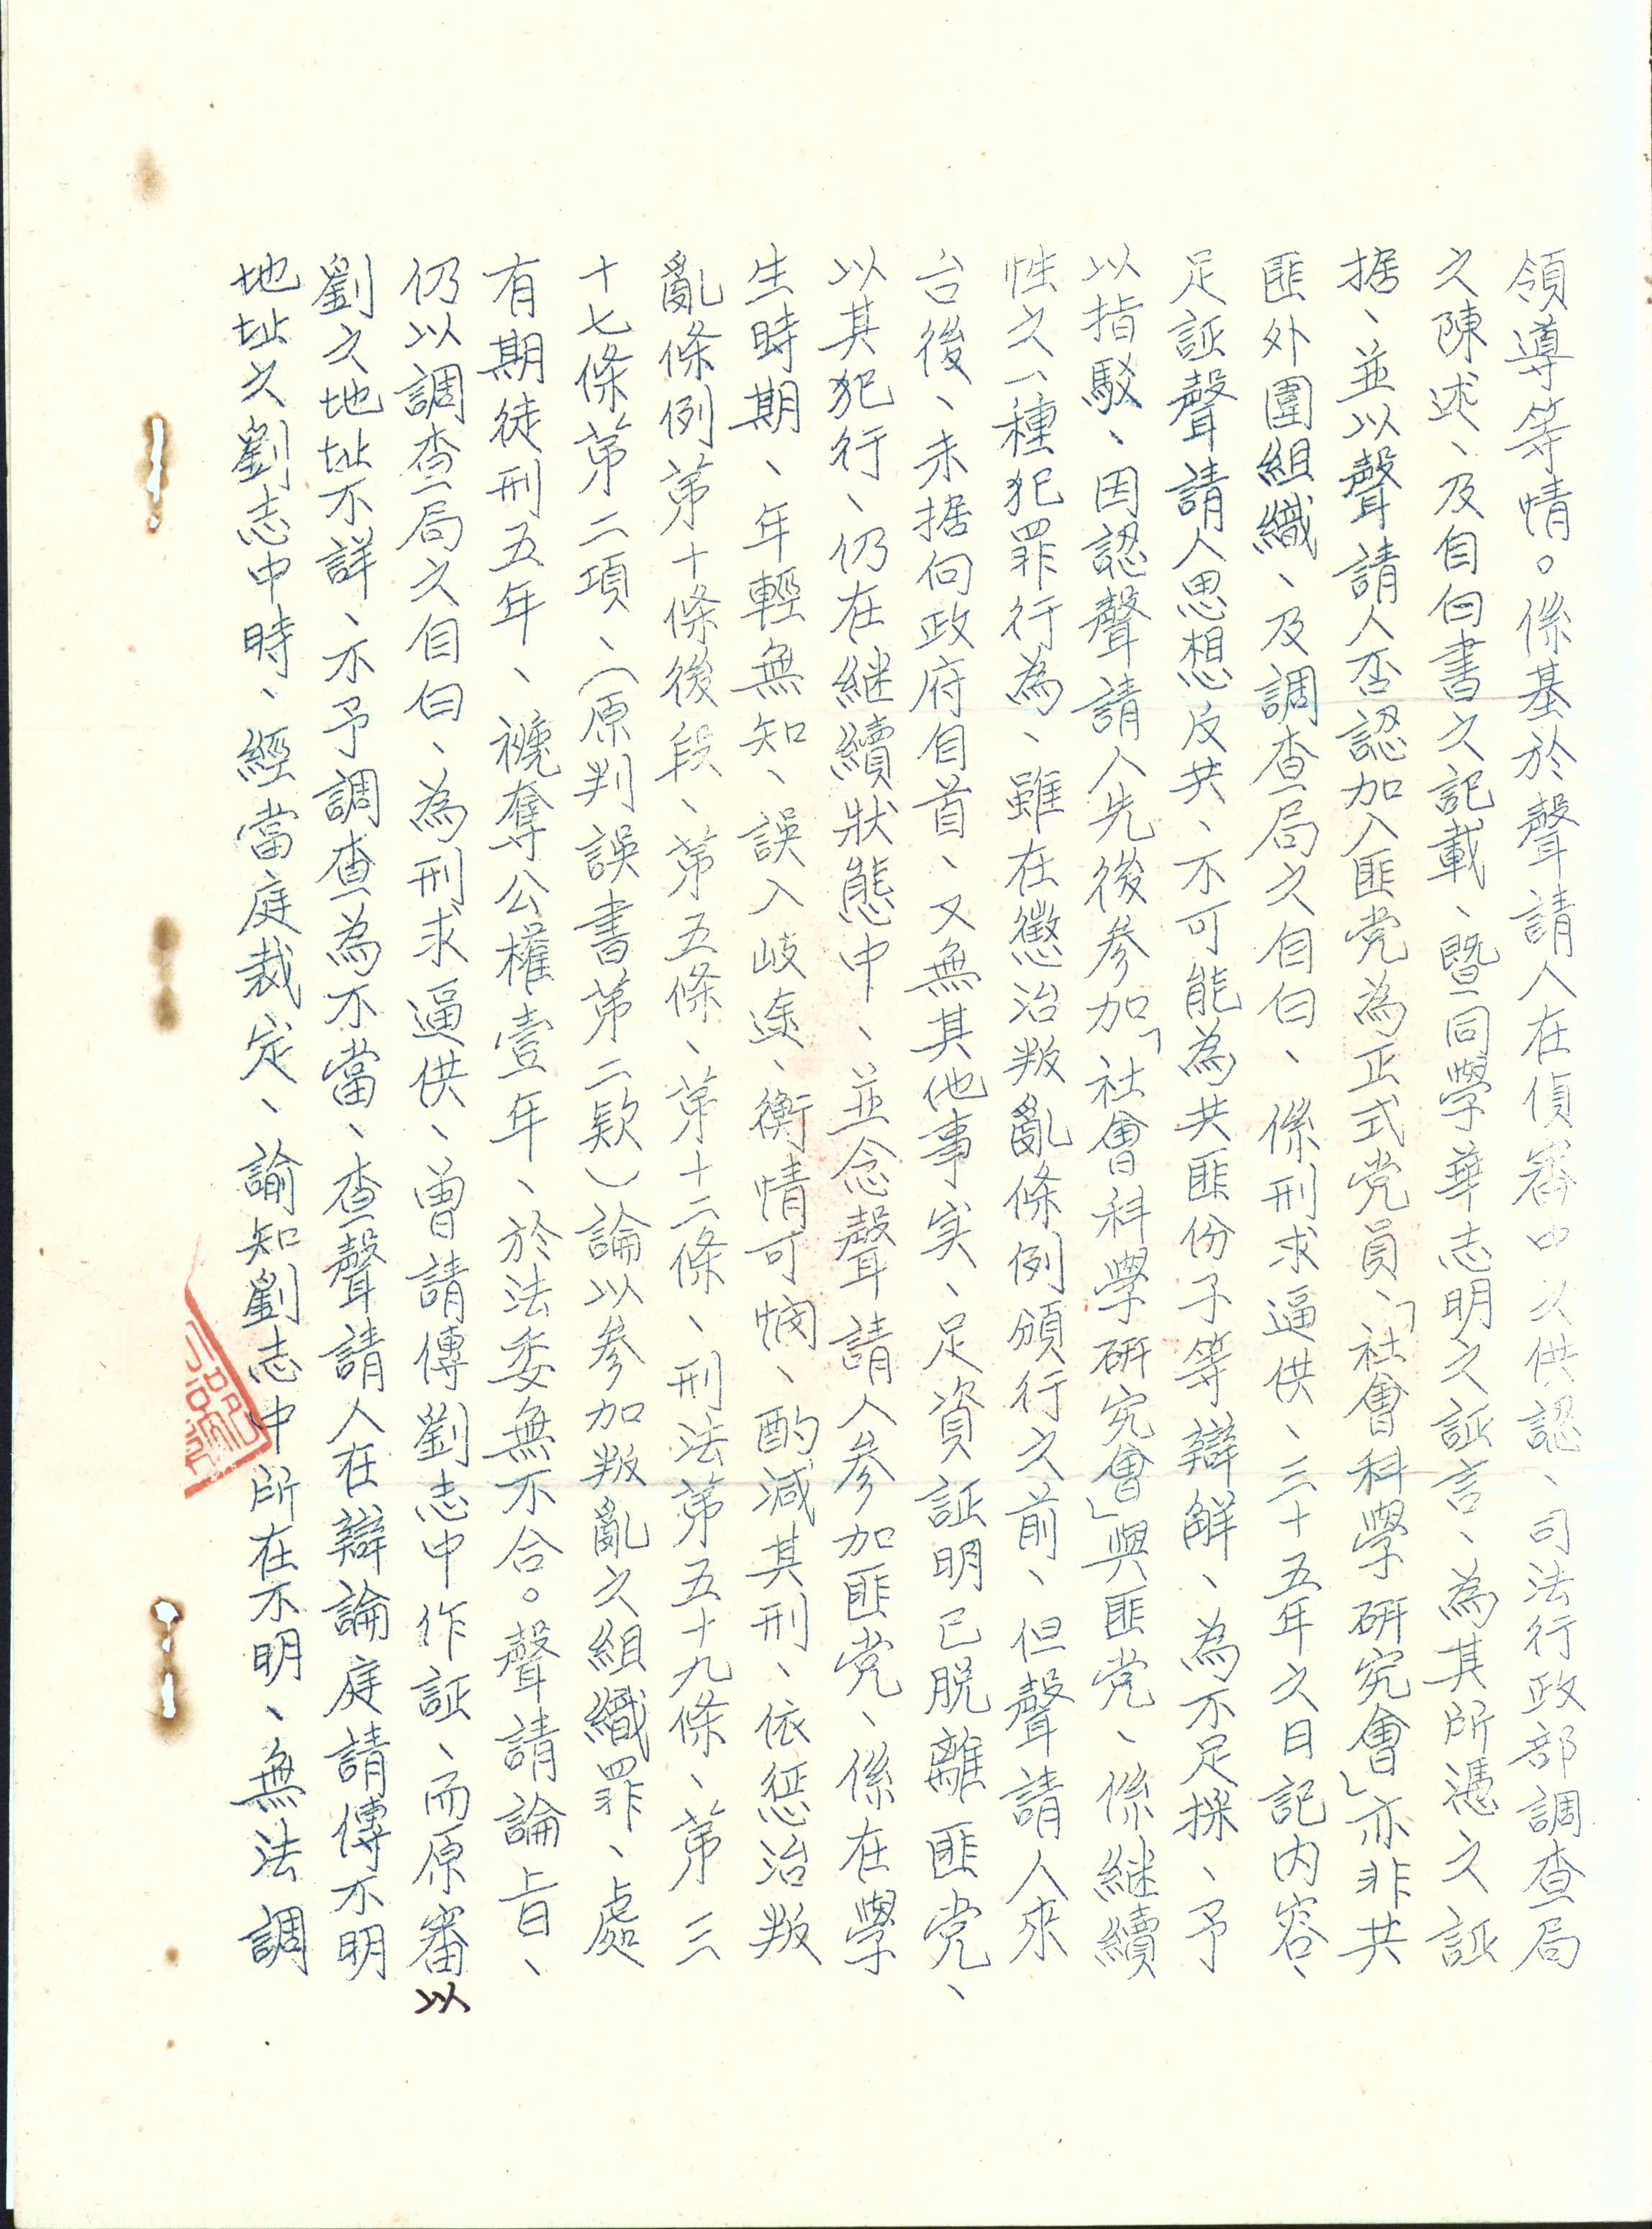 領導等情。係基於聲請人在偵審中之供認、司法行政部調查局
之陳述、及自白書之記載、暨同學華志明之証言、為其所憑之証
据、並以聲請人否認加入匪党為正式党員、「社會科學研究會」亦非共
匪外圍組織、及調查局之自白、係刑求逼供、三十五年之日記内容、
足証聲請人思想反共、不可能為共匪份子等辯解、為不足採、予
以指駁、因認聲請人先後参加「社會科學研究會」與匪党、係継續
性之一種犯罪行為、雖在懲治叛亂條例頒行之前、但聲請人來
台後、未据向政府自首、又無其他事実、足資証明已脱離匪党、
以其犯行、仍在継續狀態中、並念聲請人参加匪党、係在學
生時期、年輕無知、誤入岐途、衡情可憫、酌减其刑、依惩治叛
亂條例第十條後段、第五條、第十二條、刑法第五十九條、第三
十七條第二項、(原判誤書第二欵)論以参加叛亂之組織罪、處
有期徒刑五年、褫奪公權壹年、於法委無不合。聲請論旨、
仍以調查局之自白、為刑求逼供、曾請傳劉志中作証、而原審以
劉之地址不詳、不予調查為不當、查聲請人在辯論庭請傳不明
地址之劉志中時、經當庭裁定、諭知劉志中所在不明、無法調